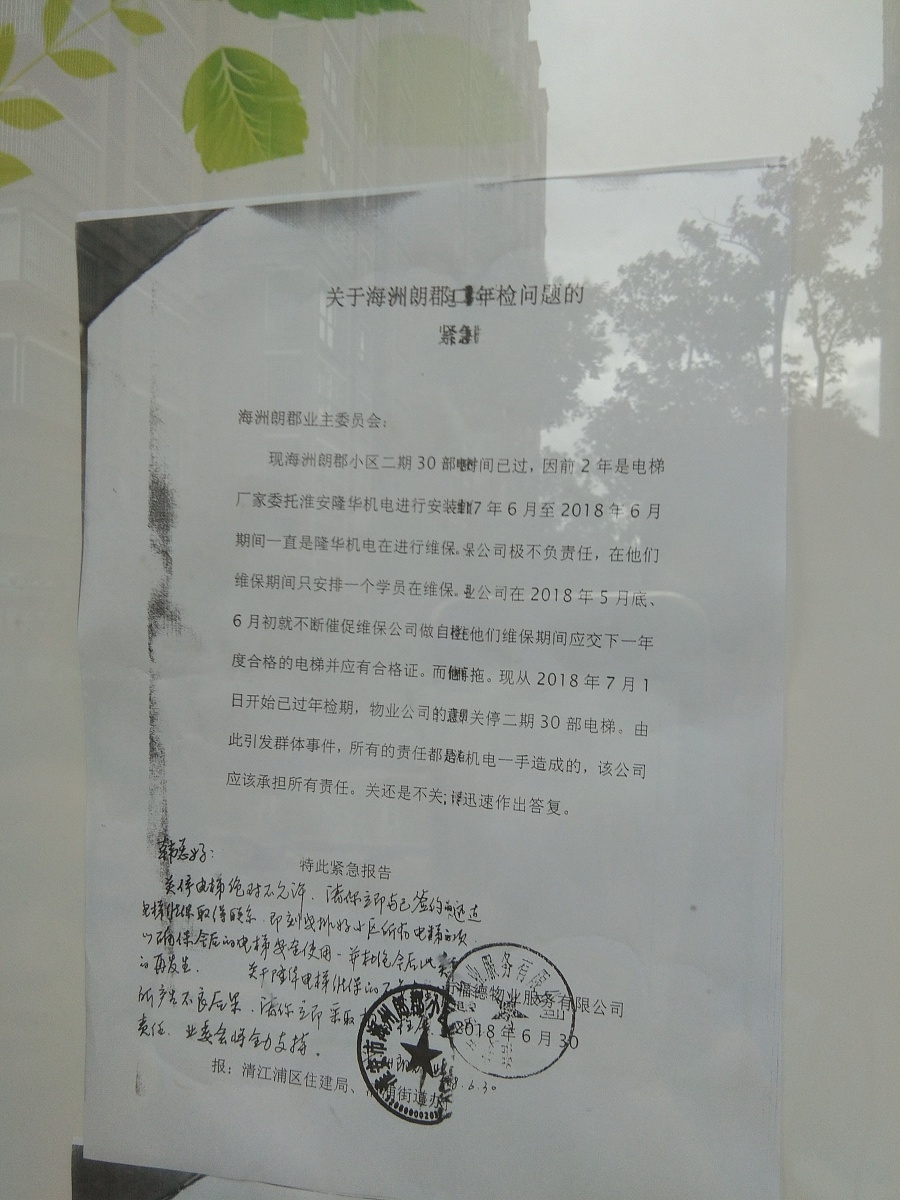 关于海洲朗郡年检问题的
紧急
海洲朗郡业主委员会：
现海洲朗郡小区二期 30 部时间已过，因前 2 年是电梯
厂家委托淮安隆华机电进行安装7 年 6 月至 2018 年 6 月
期间一直是隆华机电在进行维保。公司极不负责任，在他们
维保期间只安排一个学员在维保。公司在 2018 年 5 月底、
6 月初就不断催促维保公司做自他们维保期间应交下一年
度合格的电梯并应有合格证。而拖。现从 2018 年 7 月 1
日开始已过年检期，物业公司的意关停二期 30 部电梯。由
此引发群体事件，所有的责任都是机电一手造成的，该公司
应该承担所有责任。关还是不关；迅速作出答复。
特此紧急报告
关停电梯绝对不允许，请你立即与已签约
电梯维保取得联系，即刻安排好小区所有电梯
以确保今后的电梯安全使用，并杜绝今后此类
的再发生。关于隆华电梯维保的不
所产生不良后果，请你立即采取
责任，业委会将全力支持。
福德物业服务有限公司
2018 年 6 月 30
业服务有限公司
淮安市海洲朗郡小
8.6.30
报：清江浦区住建局、浦街道办